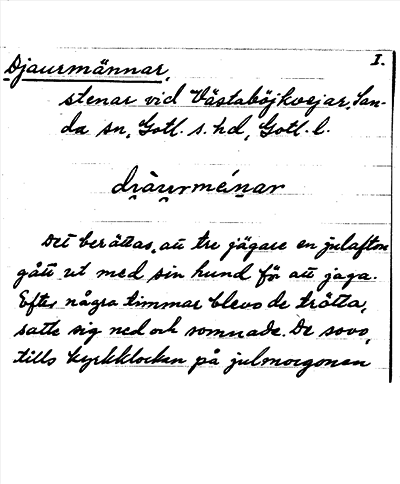 I.
Djaurmännar,
stenar vid Västaböjkvejar, San-
da sn, Gotl. s. hd, Gotl. l.
Det berättas, att tre jägare en julafton
gått ut med sin hund för att jaga.
Efter några timmar blevo de trötta,
satte sig ned och somnade. De sovo,
tills kyrkklockan på julmorgonen